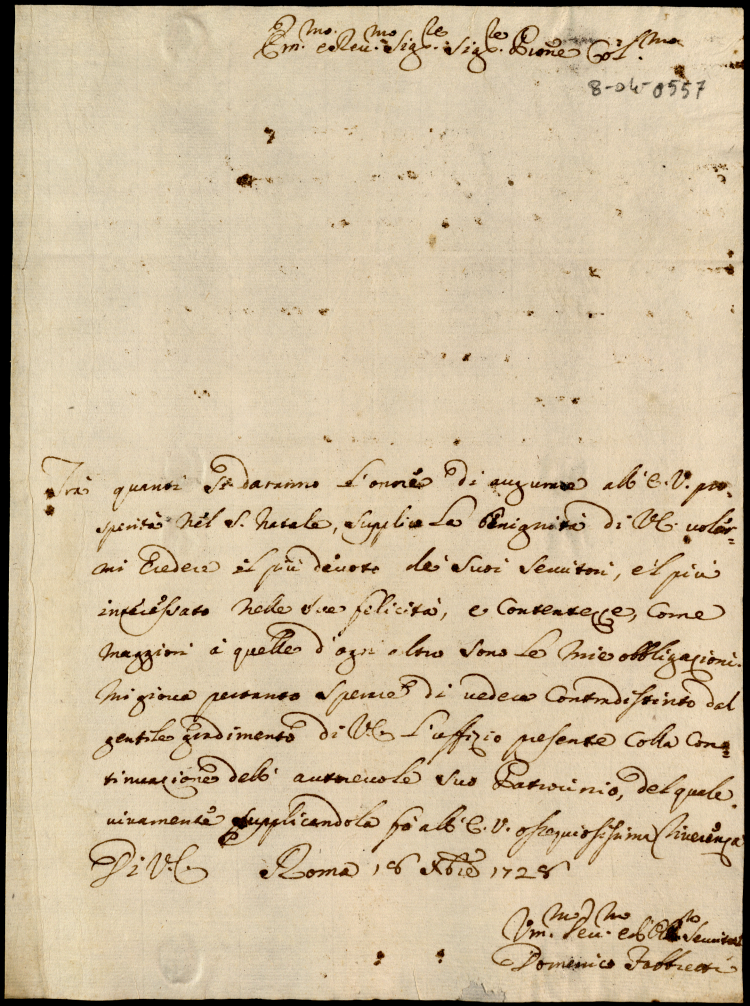 Em.mo e Reu.mo Sig.re Sig.re Prone Col.mo
8-04-0557
Trà quanti si daranno l'onore di augurare all'E.V. pro-
sperità nel S. Natale, supplico la benignità di V.E. voler-
mi credere il più devoto dei suoi Servitori, e'l più
interessato nelle sue felicità, e contentezze, come
maggiori à quelle d'ogni altro sono le mie obbligazioni.
Mi giova pertanto sperare di vedere contradistinto dal
gentile gradimento di V.E. l'uffizio presente colla con-
tinuazione dell' autorevole suo Patrocinio, del quale
vivamente supplicandola fò all'E.V. ossequiosissima riverenza
Di V.E. Roma 18 Xbre 1728
Vm.mo Deu. ed Servitore
Domenico Fabbretti